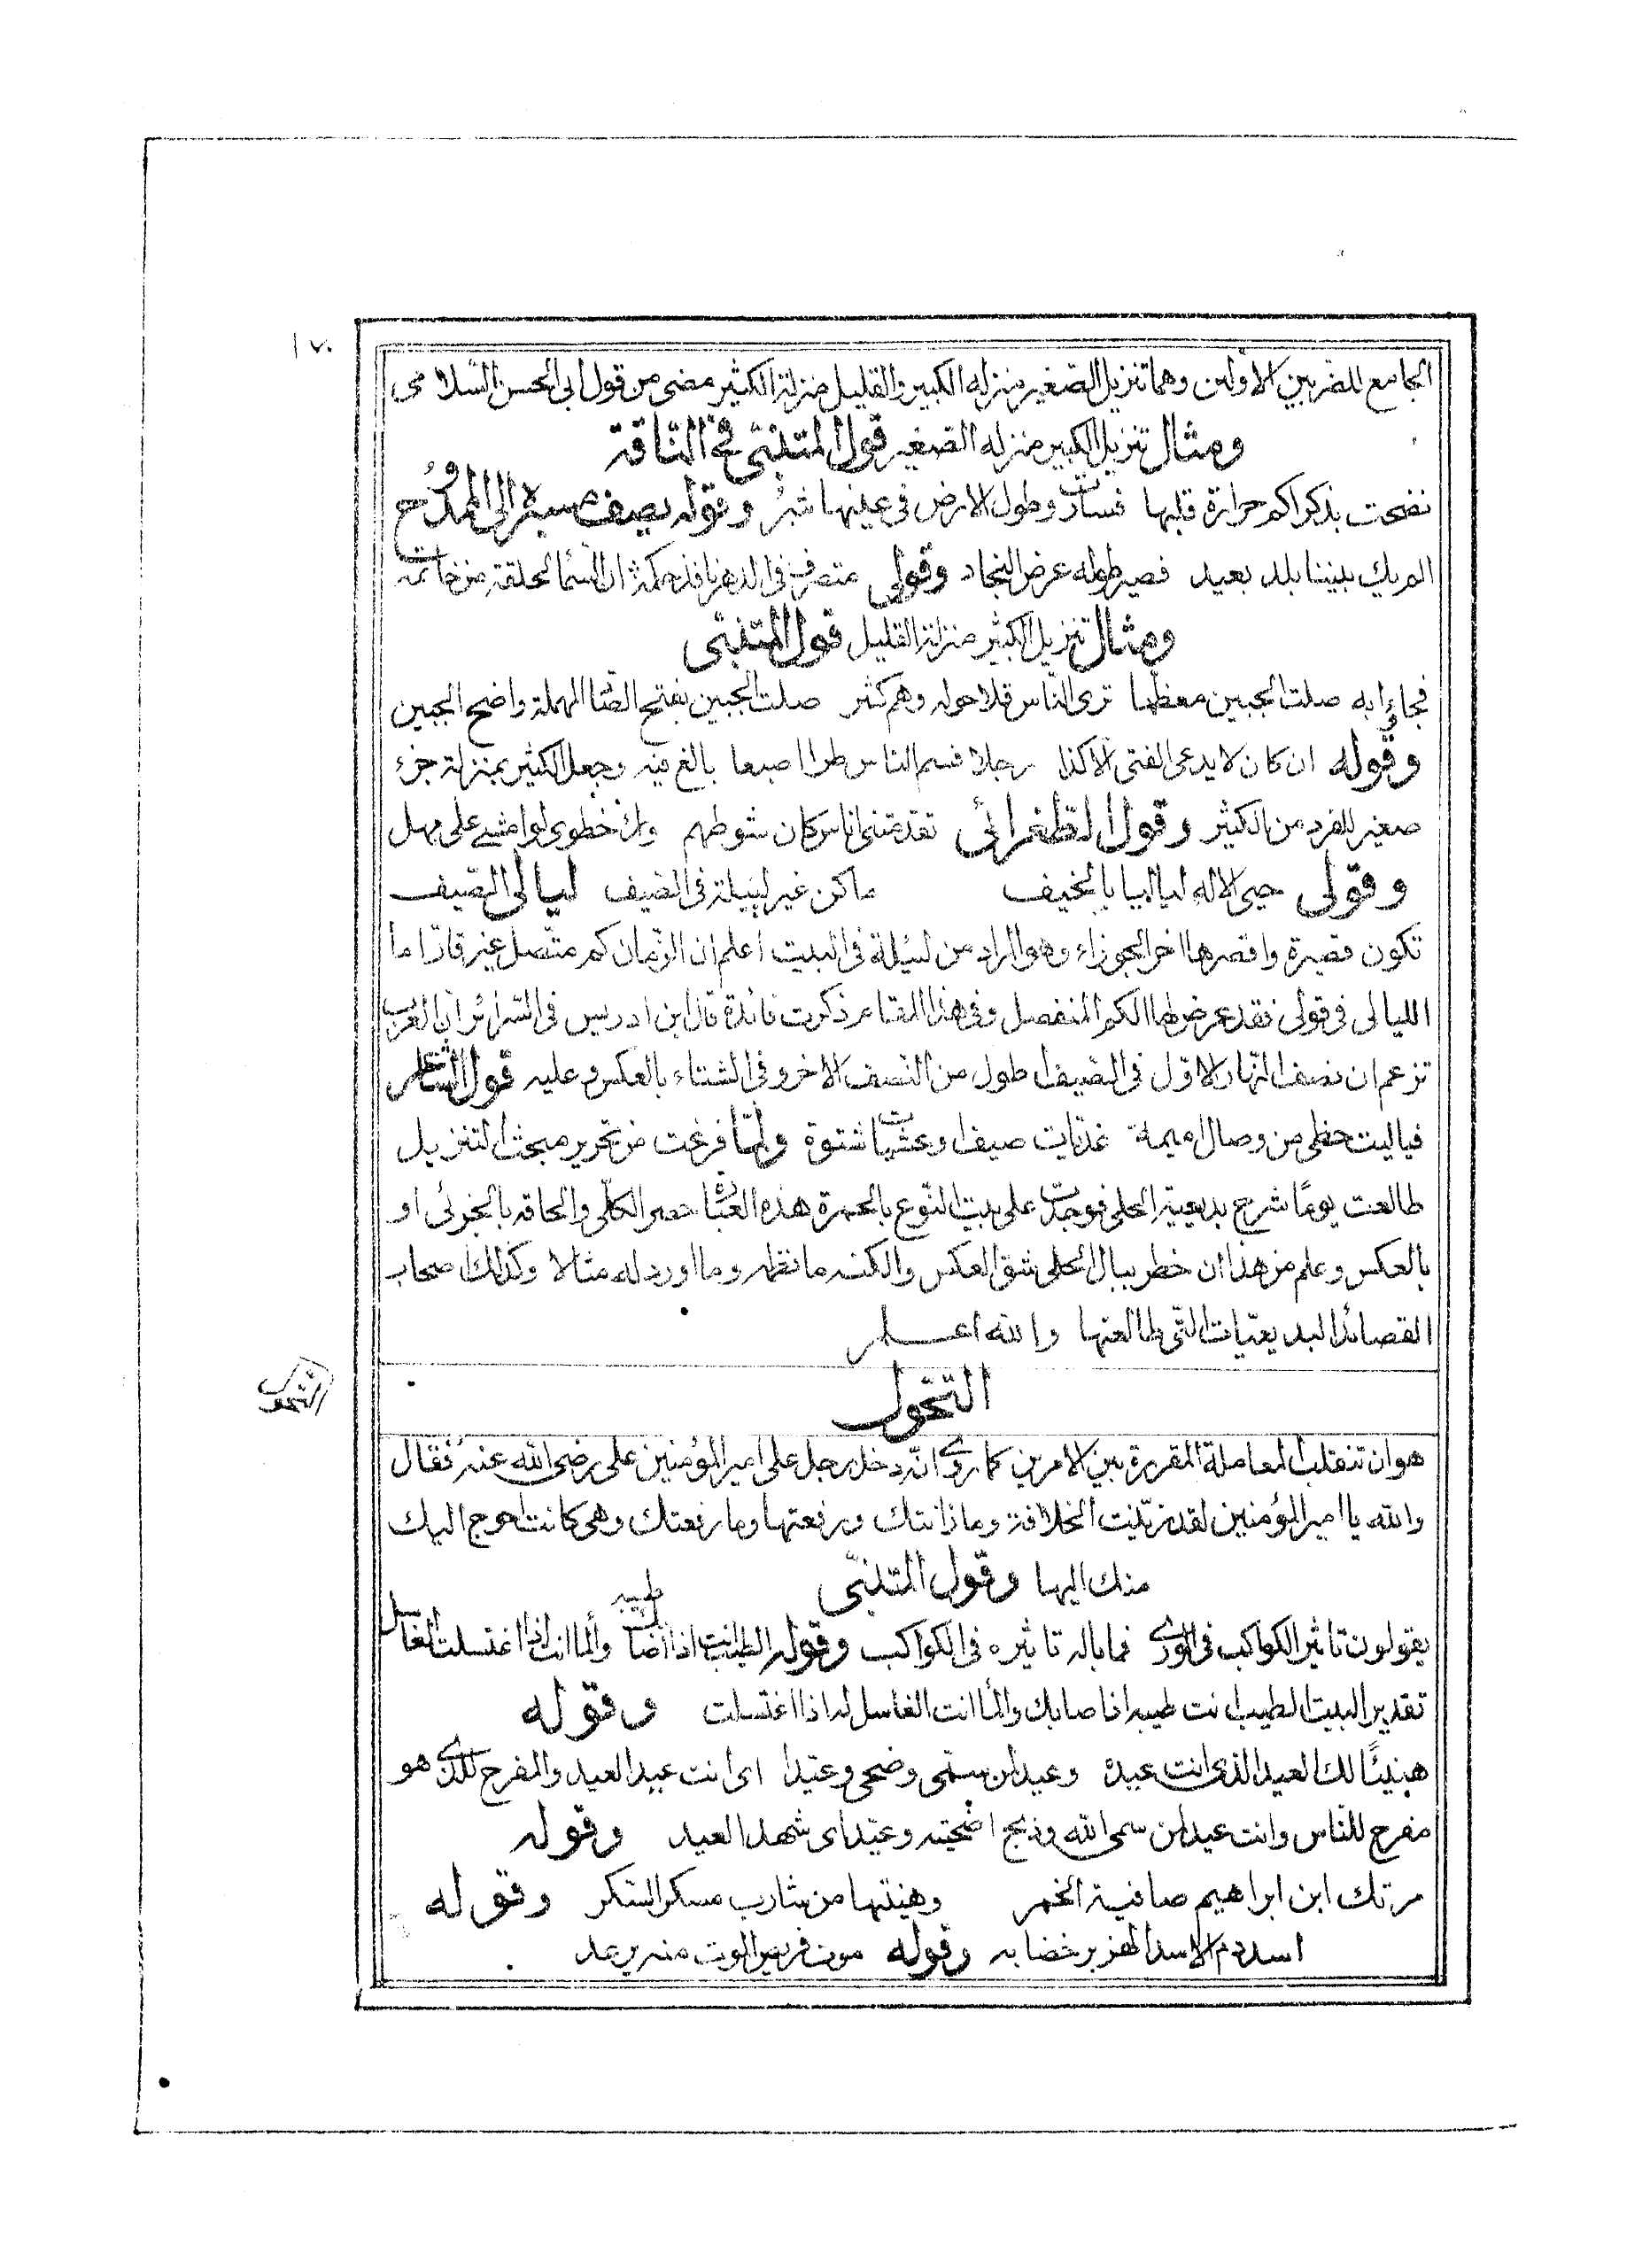 ١٧٠
الجامع للضربين الاولين وهما تنزيل الصغير منزله الكبير والقليل منزلة الكثير مضى من قول ابى الحسن السّلامى
ومثال تنزيل الكبير منزله الصغير قول المتنبّى فى النّاقة
نضحت بذكراكم حرارة قلبها فسارت وطول الارض فى عينها شبرُ وقوله يصف سيره الى الممدُوح
المريك بيننا بلد بعيد فصير طوله عرض النجاد وقولى متصرف فى الدهر نافذ حكمه ان السّما لحلقة من خاتمه
ومثال تنزيل الكثير منزلة القليل قول المتنبّى
فجاؤا به صلت الجبين معظّما ترى النّاس قلا حوله وهم كثر صلت الجبين بفتح الصّاد المهملة واضح الجبين
وقوله ان كان لا يدعى الفتى الّا كذا رجلا فسم الناس طرا اصبعا بالغ فيه وجعل الكثير بمنزلة جزء
صغير للفرد من الكثير وقول الطّغرائى تقدمتنى اناس كان شوطهم وراء خطوى لو امشى على مهل
وقولى حيى الاله لياليا بالخيف ما كن غير لييلة فى الصّيف ليالى الصّيف
تكون قصيرة واقصرها اخر الجوزاء وهو المراد من لييلة فى البيت اعلم ان الزّمان كم متّصل غير قار امّا
الليالى فى قولى فقد عرض لها الكم المنفصل وفى هذا المقام ذكرت فائدة قال ابن ادريس فى السّرائر ان العرب
تزعم ان نصف النّهار الاوّل فى الصّيف اطول من النصف الاخر وفى الشتاء بالعكس وعليه قول الشّاعر
فياليت حظى من وصال اميمة غديّات صيف او عشيّات شتوة ولمّا فرغت من تحرير مبحث التنزيل
طالعت يومًا شرح بديعية الحلى فوجدت على بيت النّوع بالحمرة هذه العبارة حصر الكلّى والحاقه بالجزئى او
بالعكس وعلم من هذا ان خطر ببال الحلى شق العكس والكنه ما نظمه وما اورد له مثالا وكذلك اصحاب
القصائد البديعيّات التّى طالعتها والله اعلم
التحوّل
التحوّل
هو ان تنقلب المعاملة المقررة بين الامرين كما روى انّه دخل رجل على امير المؤمنين على رضى الله عنهُ فقال
والله يا امير المؤمنين لقد زيّنت الخلافة وما زانتك ورفعتها وما رفعتك وهى كانت احوج اليك
منك اليها وقول المتنبّى
يقولون تاثير الكواكب فى الورى فما باله تاثيره فى الكواكب وقوله الطيب انت اذا اصابك طيبه والما انت اذا اغتسلت الغاسل
تقدير البيت الطيب انت طيبه اذا صابك والما انت الغاسل له اذا اغتسلت وقوله
هنيئًا لك العيد الذى انت عيده وعيد لمن سمّى وضحى وعيّدا اى انت عيد العيد والمفرح للذى هو
مفرح للناس وانت عيد لمن سمى الله وذبح اضحيته وعيّد اى شهد العيد وقوله
مرتك ابن ابراهيم صافية الخمر وهنيتها من شارب مسكر السّكر وقوله
اسد دم الاسد الهزبر خضابه وقوله موت فريص الموت منه يرعد